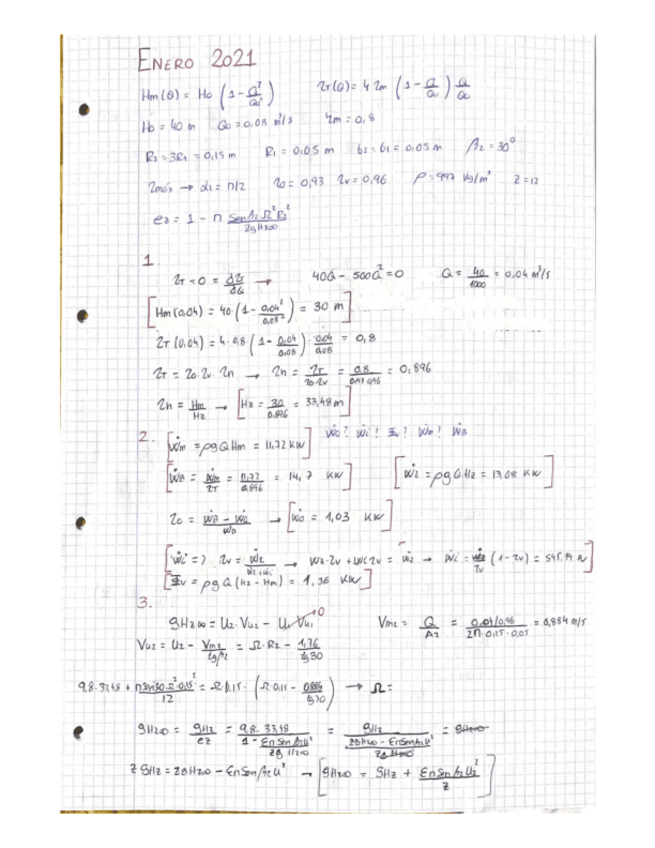 ENERO 2021
Hm(Q) = Ho (1 - Q²/Qo²)    ηT(Q) = 4 ηm (1 - Q/Qo) Q/Qo
Ho = 40 m    Qo = 0,08 m³/s    ηm = 0,8
R2 = 3R1 = 0,15 m    R1 = 0,05 m    b2 = b1 = 0,05 m    β2 = 30°
ηmáx → α1 = π/2    ηo = 0,93    ηv = 0,96    ρ = 997 kg/m³    z = 12
1.
ηT = 0 = dη/dQ →    40Q - 500Q² = 0    Q = 40/1000 = 0,04 m³/s
[Hm(0,04) = 40·(1 - 0,04²/0,08²) = 30 m]
ηT(0,04) = 4·0,8·(1 - 0,04/0,08)·0,04/0,08 = 0,8
ηT = ηo·ηv·ηh → ηh = ηT/ηo·ηv = 0,8/0,93·0,96 = 0,896
ηh = Hm/Hz → [Hz = 30/0,896 = 33,48 m]
2. [Ẇm = ρgQHm = 11,72 kW]    Ẇo? Ẇi? Φv? Ẇm? ẆB
[ẆB = Ẇm/ηT = 11,72/0,896 = 14,7 kW]    [Ẇz = ρgQHz = 13,08 kW]
ηo = ẆB - Ẇo/ẆB → [Ẇo = 1,03 kW]
[Ẇi => ηv = Ẇz/Ẇz+Ẇi → Wz·ηv + Wi ηv = Ẇz → Ẇi = Ẇz/ηv (1 - ηv) = 545,14 W]
[Φv = ρgQ(Hz - Hm) = 1,36 kW]
3.
gHz∞ = U2·Vu2 - U1Vu1→0    Vm2 = Q/A2 = 0,04/0,96/2π·0,15·0,05 = 0,884 m/s
Vu2 = U2 - Vm2/tgβ2 = Ω·R2 - 1,76/tg30
→ Ω =
gHz∞ = gHz/ez = 9,8·33,48/1 - EπSenβ2U²/zgHz∞ = gHz/zgHz∞ - EπSenβ2U²/zgHz∞
z gHz = zgHz∞ - EπSenβ2U² → [gHz∞ = gHz + EπSenβ2U2²/z]